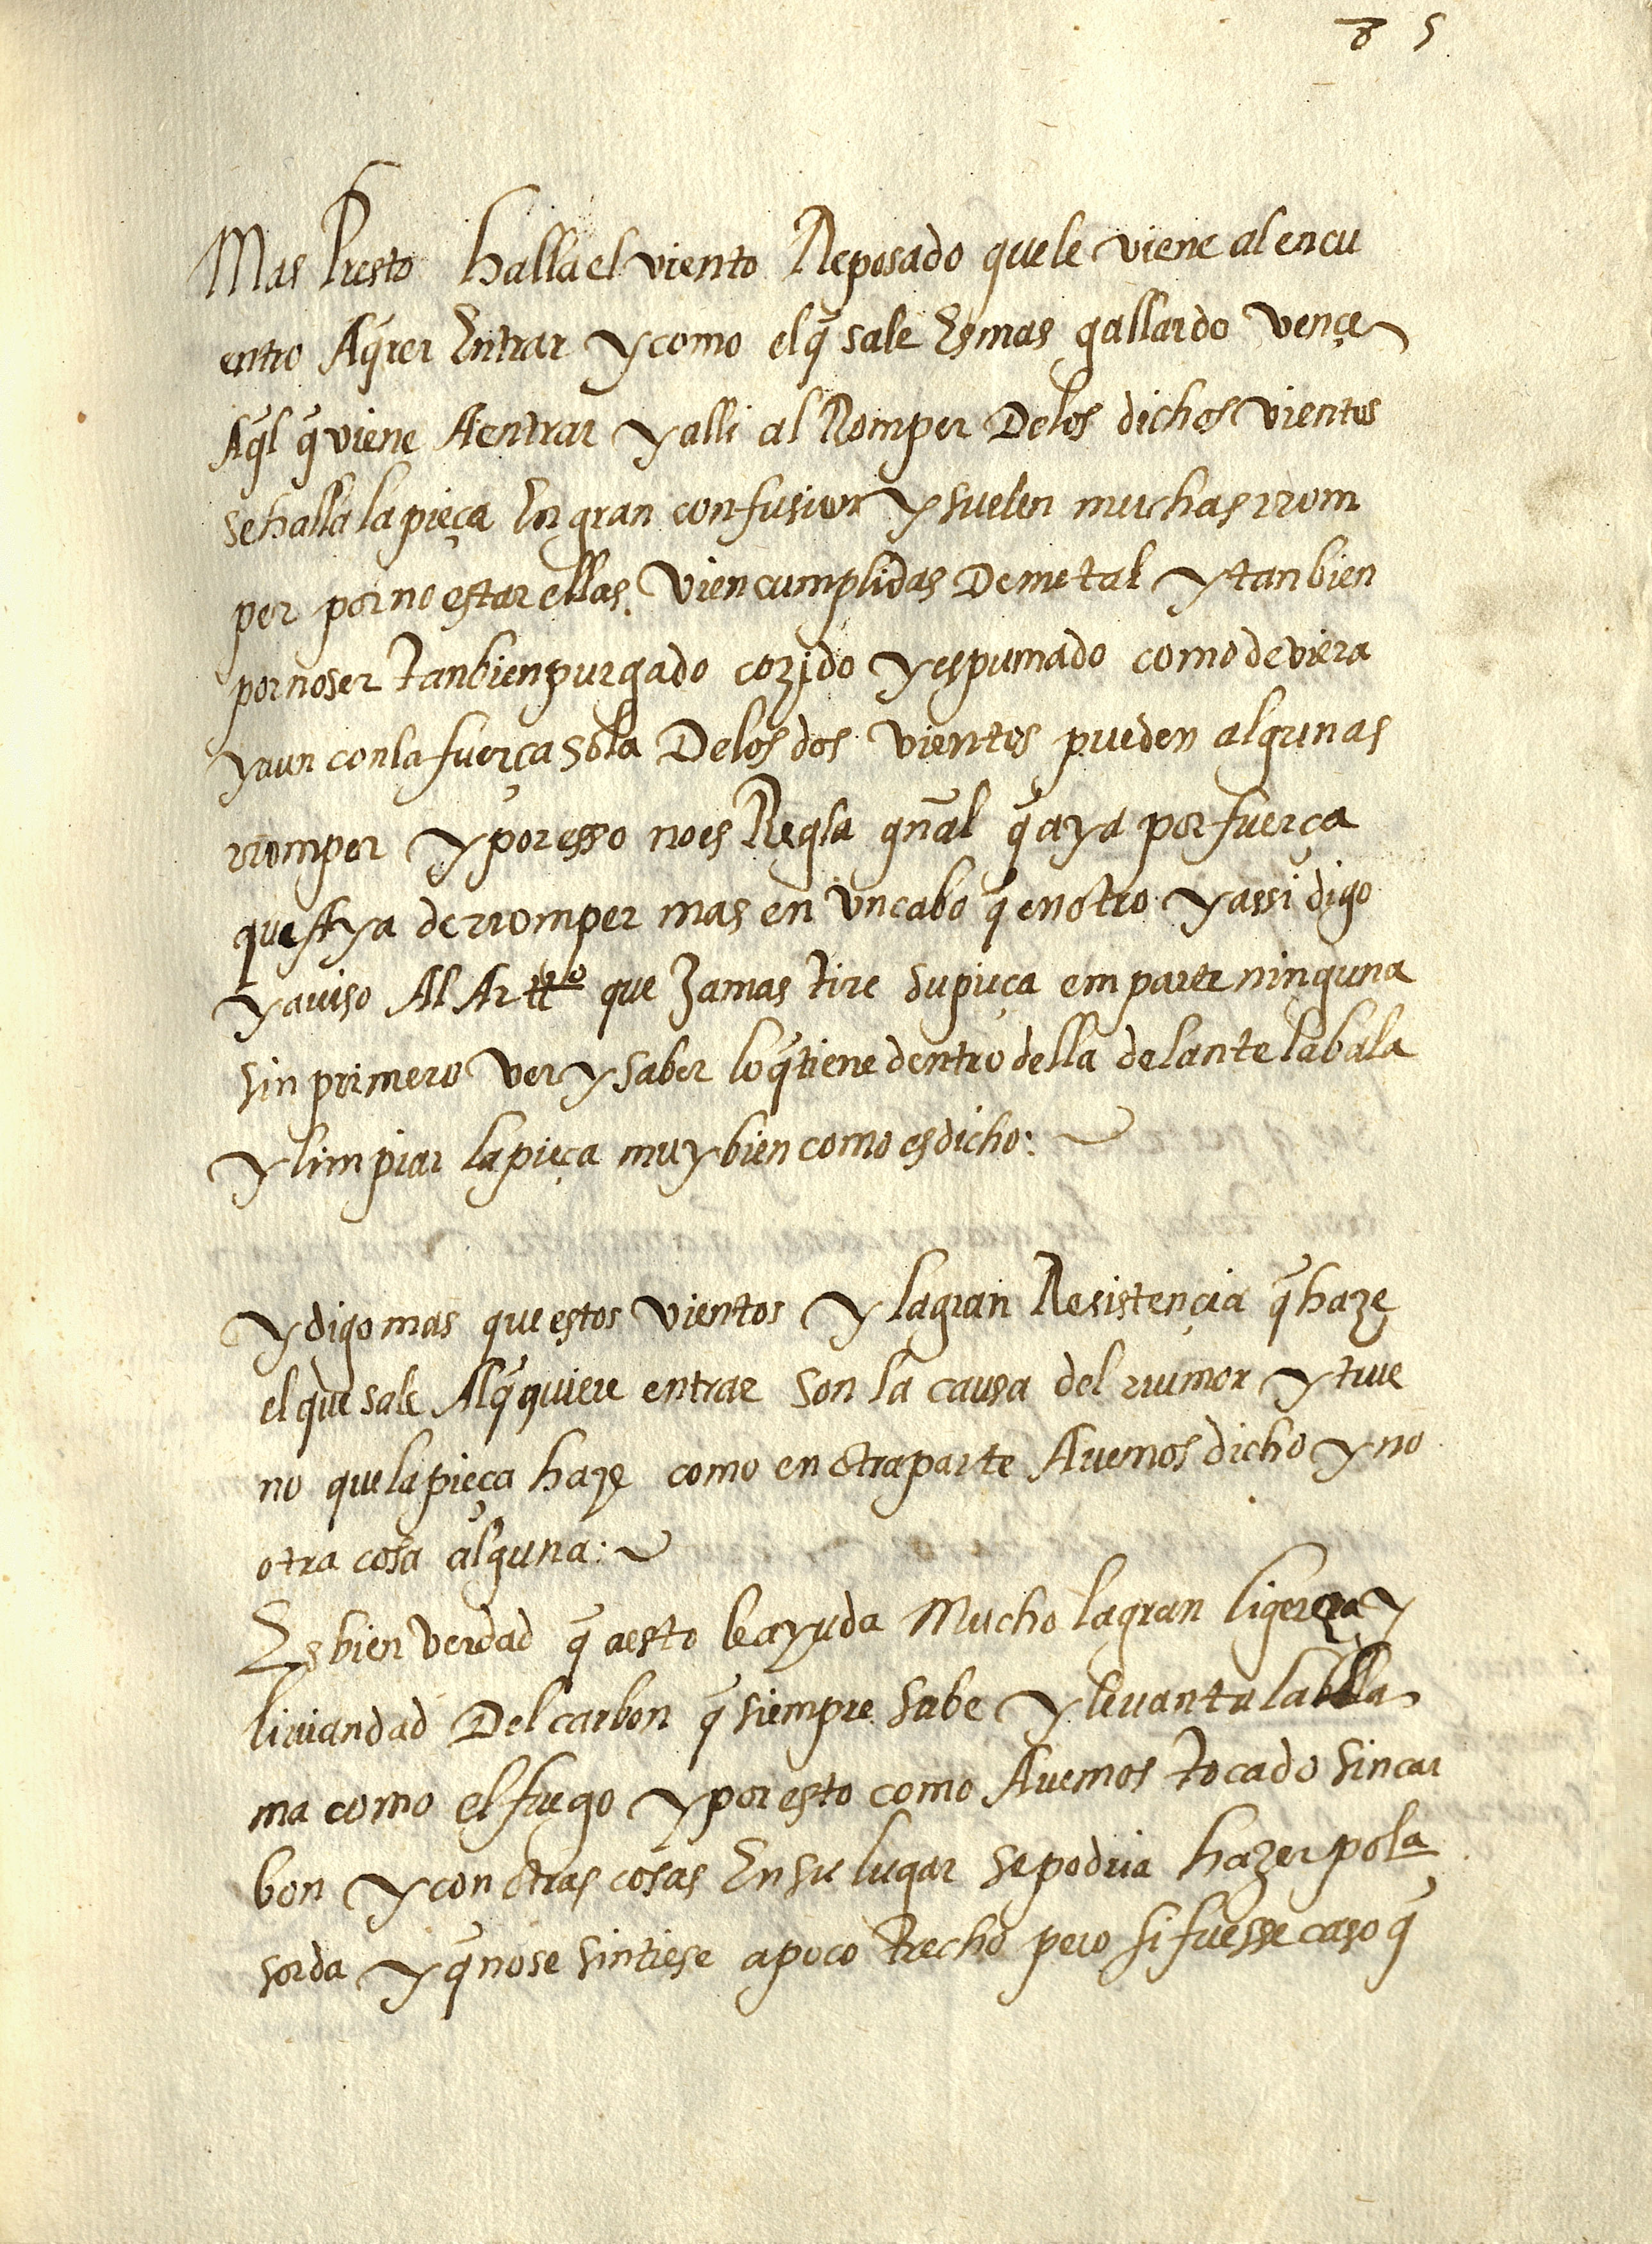 85
Mas Presto halla el viento Reposado que le viene al encu
entro A q̃rer Entrar y como el q̃ sale Es mas gallardo vençe
Aq̃l q̃ viene A entrar y alli al Romper De los dichos vientos
se halla la pieça En gran confusion y suelen muchas rrom
per por no estar ellas vien cumplidas De metal y tan bien
por no ser tan bien purgado cozido y espumado como deviera
y aun con la fuerça sola De los dos vientos pueden algunas
rromper y por esso no es Regla gñal q̃ aya por fuerça
que Aya de rromper mas en un cabo q̃ en otro y assi digo
y auiso Al Artro que Jamas tire su pieça em parte ninguna
sin primero ver y saber lo q̃ tiene dentro della delante la bala
y limpiar la pieça muy bien como es dicho:
y digo mas que estos vientos y la gran Resistençia q̃ haze
el que sale Al q̃ quiere entrar son la causa del rrumor y true
no que la pieça haze como en otra parte Auemos dicho y no
otra cosa alguna:
Es bien verdad q̃ a esto le ayuda Mucho la gran ligereza y
liuiandad Del carbon q̃ siempre sube y leuanta la lla
ma como el fuego y por esto como Auemos tocado sin car
bon y con otras cosas En su lugar se podria hazer pola
sorda y q̃ no se sintiese a poco trecho pero si fuesse caso q̃